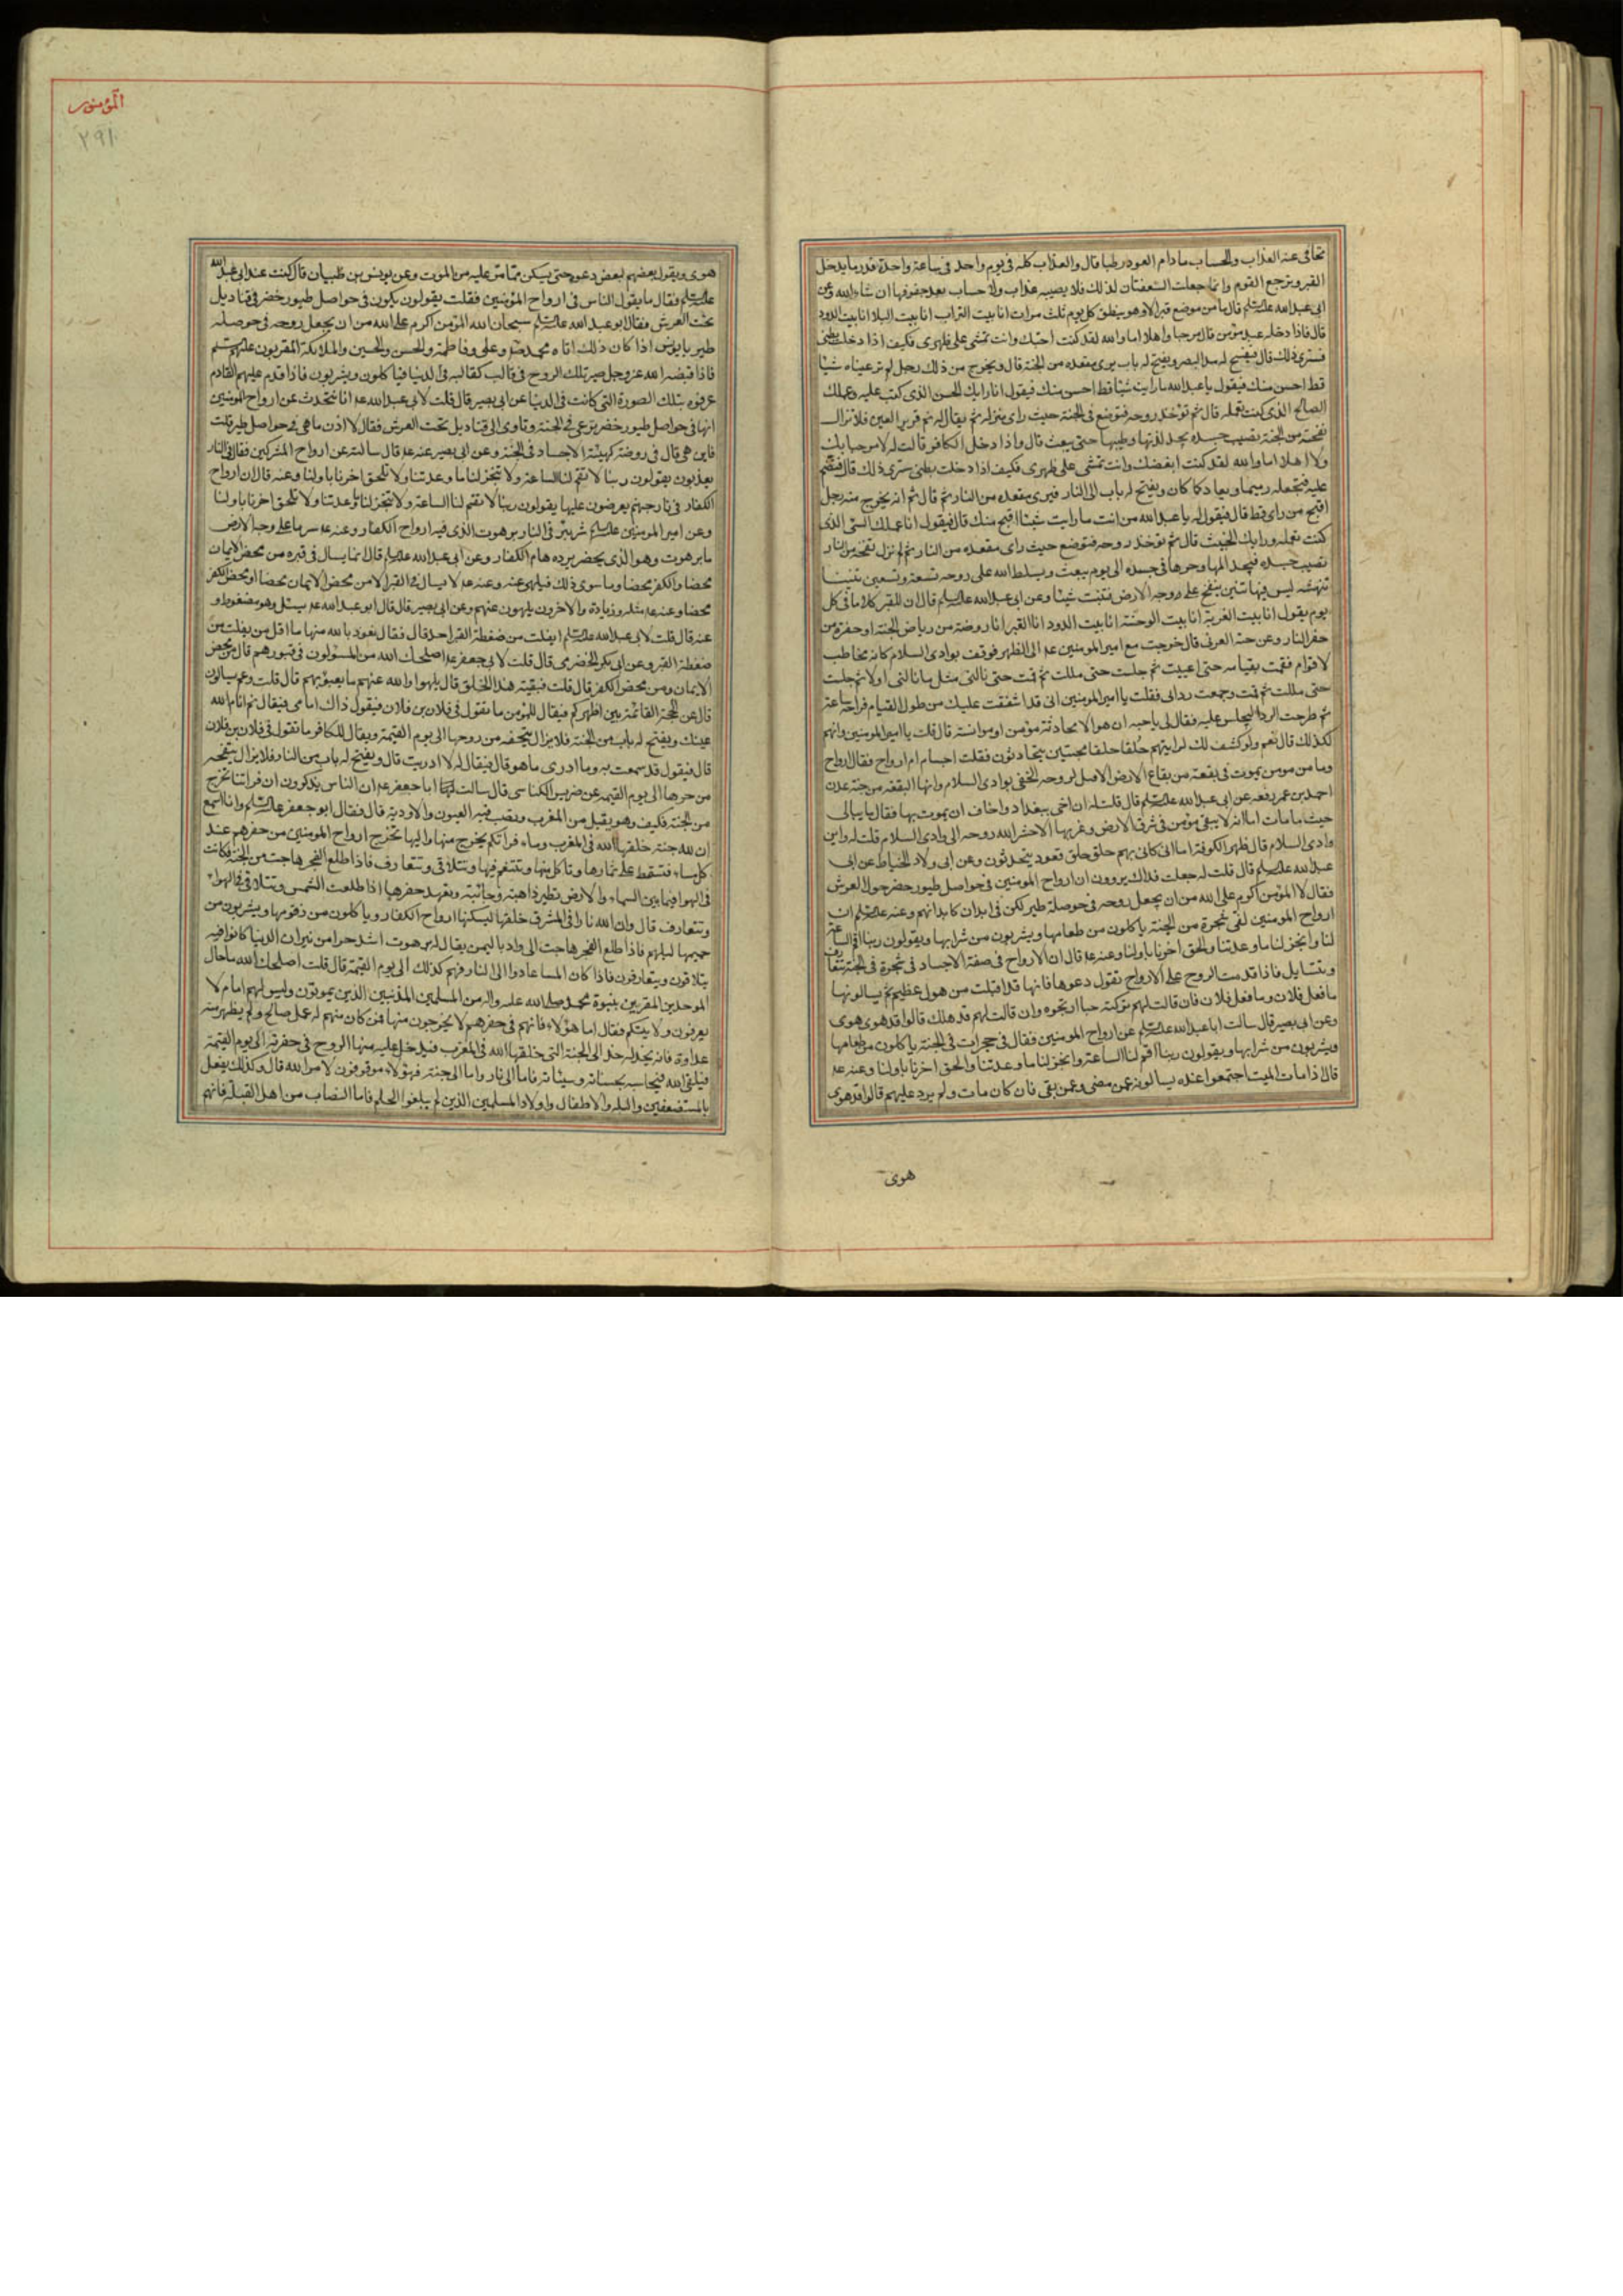 يتجافى عنه العذاب والحساب مادام العود رطبا قال والعذاب كله في يوم واحد في ساعة واحدة قدر ما يدخل
القبر ويرجع القوم وانما جعلت السعفتان لذلك فلا يصيبه عذاب ولا حساب بعد جفوفها ان شاء الله وعن
ابى عبد الله علیه السلم قال ما من موضع قبر الا وهو ينطق كل يوم ثلث مرات انا بيت التراب انا بيت البلا انا بيت الدود
قال فاذا دخله عبد مؤمن قال مرحبا واهلا اما والله لقد كنت احبك وانت تمشى على ظهرى فكيف اذا دخلت بطنى
فسترى ذلك قال فيفسح له مد البصر ويفتح له باب يرى مقعده من الجنة قال ويخرج من ذلك رجل لم تر عيناه شيئا
قط احسن منه فيقول يا عبد الله ما رايت شيئا قط احسن منك فيقول انا رايك الحسن الذى كنت عليه وعملك
الصالح الذى كنت تعمله قال ثم تؤخذ روحه فتوضع في الجنة حيث راى منزله ثم يقال له نم قرير العين فلا تزال
نفحة من الجنة تصيب جسده يجد لذتها وطيبها حتى يبعث قال واذا دخل الكافر قالت له لا مرحبا بك
ولا اهلا اما والله لقد كنت ابغضك وانت تمشى على ظهرى فكيف اذا دخلت بطنى سترى ذلك قال فتضم
عليه فتجعله رميما ويعاد كما كان ويفتح له باب الى النار فيرى مقعده من النار ثم قال ثم انه يخرج منه رجل
اقبح من راى قط قال فيقول له يا عبد الله من انت ما رايت شيئا اقبح منك قال فيقول انا عملك السئ الذى
كنت تعمله ورايك الخبيث قال ثم تؤخذ روحه فتوضع حيث راى مقعده من النار ثم لم تزل نفخة من النار
تصيب جسده فيجد المها وحرها في جسده الى يوم يبعث ويسلط الله على روحه تسعة وتسعين تنينا
تنهشه ليس فيها تنين ينفخ على وجه الارض فتنبت شيئا وعن ابى عبد الله علیه السلم قال ان للقبر كلاما في كل
يوم يقول انا بيت الغربة انا بيت الوحشة انا بيت الدود انا القبر انا روضة من رياض الجنة او حفرة من
حفر النار وعن حبة العرنى قال خرجت مع امير المومنين عم الى الظهر فوقف بوادى السلام كانه مخاطب
لاقوام فقمت بقيامه حتى اعييت ثم جلست حتى مللت ثم قمت حتى نالنى مثل ما نالنى اولا ثم جلست
حتى مللت ثم قمت وجمعت ردائى فقلت يا امير المومنين انى قد اشفقت عليك من طول القيام فراحة ساعة
ثم طرحت الردا ليجلس عليه فقال لى يا حبه ان هو الا محادثة مؤمن او موانسته قال قلت يا امير المومنين وانهم
لكذلك قال نعم ولو كشف لك لرايتهم حلقا حلقا محتبين يتحادثون فقلت اجسام ام ارواح فقال ارواح
وما من مومن يموت في بقعة من بقاع الارض الا قيل لروحه الحقى بوادى السلام وانها لبقعة من جنة عدن
احمد بن عمر رفعه عن ابى عبد الله علیه السلم قال قلت له ان اخى ببغداد واخاف ان يموت بها فقال ما يبالى
حيث ما مات اما انه لا يبقى مؤمن في شرق الارض وغربها الا حشر الله روحه الى وادى السلام قلت له واين
وادى السلام قال ظهر الكوفة اما انى كانى بهم حلق حلق قعود يتحدثون وعن ابى ولاد الحناط عن ابى
عبد الله علیه السلم قال قلت له جعلت فداك يروون ان ارواح المومنين في حواصل طيور خضر حول العرش
فقال لا المؤمن اكرم على الله من ان يجعل روحه في حوصلة طير لكن في ابدان كابدانهم وعنه علیه السلم ان
ارواح المومنين لفى شجرة من الجنة ياكلون من طعامها ويشربون من شرابها ويقولون ربنا اقم الساعة
لنا وانجز لنا ما وعدتنا والحق اخرنا باولنا وعنه عم قال ان الارواح في صفة الاجساد في شجرة في الجنة تتعارف
وتتسايل فاذا قدمت الروح على الارواح تقول دعوها فانها قد اقبلت من هول عظيم ثم يسالونها
ما فعل فلان وما فعل فلان فان قالت لهم تركته حيا ارتجوه وان قالت لهم قد هلك قالوا قد هوى هوى
وعن ابى بصير قال سالت ابا عبد الله علیه السلم عن ارواح المومنين فقال في حجرات في الجنة ياكلون من طعامها
ويشربون من شرابها ويقولون ربنا اقم لنا الساعة وانجز لنا ما وعدتنا والحق اخرنا باولنا وعنه عم
قال اذا مات الميت اجتمعوا عنده يسالونه عمن مضى وعمن بقى فان كان مات ولم يرد عليهم قالوا قد هوى
هوى
المؤمنون
٢٩١
هوى ويقول بعضهم لبعض دعوه حتى يسكن مما مر عليه من الموت وعن يونس بن ظبيان قال كنت عند ابى عبد الله
علیه السلم فقال ما يقول الناس في ارواح المؤمنين فقلت يقولون يكون في حواصل طيور خضر في قناديل
تحت العرش فقال ابو عبد الله علیه السلم سبحان الله المؤمن اكرم على الله من ان يجعل روحه في حوصلة
طير يا يونس اذا كان ذلك اتاه محمد ص وعلى وفاطمة والحسن والحسين والملائكة المقربون عليهم السلم
فاذا قبضه الله عز وجل صير تلك الروح في قالب كقالبه في الدنيا فياكلون ويشربون فاذا قدم عليهم القادم
عرفوه بتلك الصورة التى كانت في الدنيا عن ابى بصير قال قلت لابى عبد الله عم انا نتحدث عن ارواح المؤمنين
انها في حواصل طيور خضر ترعى في الجنة وتاوى الى قناديل تحت العرش فقال لا اذن ما هى في حواصل طير قلت
فاين هى قال في روضة كهيئة الاجساد في الجنة وعن ابى بصير عنه عم قال سالته عن ارواح المشركين فقال في النار
يعذبون يقولون ربنا لا تقم لنا الساعة ولا تنجز لنا ما وعدتنا ولا تلحق اخرنا باولنا وعنه قال ان ارواح
الكفار في نار جهنم يعرضون عليها يقولون ربنا لا تقم لنا الساعة ولا تنجز لنا ما وعدتنا ولا تلحق اخرنا باولنا
وعن امير المومنين علیه السلم شر بئر في النار برهوت الذى فيه ارواح الكفار وعنه عم شر ماء على وجه الارض
ماء برهوت وهو الذى بحضرموت يرده هام الكفار وعن ابى عبد الله علیه السلم قال انما يسال في قبره من محض الايمان
محضا والكفر محضا وما سوى ذلك فيلهى عنه وعنه عم لا يسال في القبر الا من محض الايمان محضا او محض الكفر
محضا وعنه عم مثله وزيادة والاخرون يلهون عنهم وعن ابى بصير قال قال ابو عبد الله عم يسئل وهو مضغوط و
عنه قال قلت لابى عبد الله علیه السلم ايفلت من ضغطة القبر احد قال فقال نعوذ بالله منها ما اقل من يفلت من
ضغطة القبر وعن ابى بكر الحضرمى قال قلت لابى جعفر عم اصلحك الله من المسئولون في قبورهم قال من محض
الايمان ومن محض الكفر قال قلت فبقية هذا الخلق قال يلهوا والله عنهم ما يعبؤ بهم قال قلت وعم يسالون
قال عن الحجة القائمة بين اظهركم فيقال للمؤمن ما تقول في فلان بن فلان فيقول ذاك امامى فيقال نم انام الله
عينك ويفتح له باب من الجنة فلا يزال يتحفه من روحها الى يوم القيمة ويقال للكافر ما تقول في فلان بن فلان
قال فيقول قد سمعت به وما ادرى ما هو قال فيقال له لا دريت قال ويفتح له باب من النار فلا يزال يتحفه
من حرها الى يوم القيمة عن ضريس الكناسى قال سالت ابا جعفر عم ان الناس يذكرون ان فراتنا تخرج
من الجنة فكيف وهو يقبل من المغرب ويصب فيه العيون والاودية قال فقال ابو جعفر علیه السلم وانا اسمع
ان لله جنة خلقها الله في المغرب وماء فراتكم يخرج منها واليها تخرج ارواح المومنين من حفرهم عند
كل مساء فتسقط على ثمارها وتاكل منها وتتنعم فيها وتتلاقى وتتعارف فاذا طلع الفجر هاجت من الجنة فكانت
في الهوا فيما بين السماء والارض تطير ذاهبة وجائية وتعهد حفرها اذا طلعت الشمس وتتلاقى في الهواء
وتتعارف قال وان الله نارا في المشرق خلقها ليسكنها ارواح الكفار وياكلون من زقومها ويشربون من
حميمها ليلهم فاذا طلع الفجر هاجت الى واد باليمن يقال له برهوت اشد حرا من نيران الدنيا كانوا فيه
يتلاقون ويتعارفون فاذا كان المسا عادوا الى النار فهم كذلك الى يوم القيمة قال قلت اصلحك الله ما حال
الموحدين المقربين بنبوة محمد صلى الله عليه واله من المسلمين المذنبين الذين يموتون وليس لهم امام ولا
يعرفون ولايتكم فقال اما هؤلاء فانهم في حفرهم لا يخرجون منها فمن كان منهم له عمل صالح ولم يظهر منه
عداوة فانه يخد له خد الى الجنة التى خلقها الله في المغرب فيدخل عليه منها الروح في حفرته الى يوم القيمة
فيلقى الله فيحاسبه بحسناته وسيئاته فاما الى نار واما الى جنة فهؤلاء موقوفون لامر الله قال وكذلك يفعل
بالمستضعفين والبله والاطفال واولاد المسلمين الذين لم يبلغوا الحلم فاما النصاب من اهل القبلة فانهم